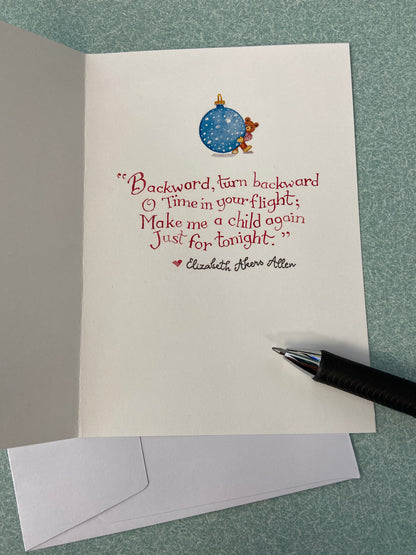 “Backward, turn backward
O Time in your flight;
Make me a child again
Just for tonight.”
Elizabeth Akers Allen